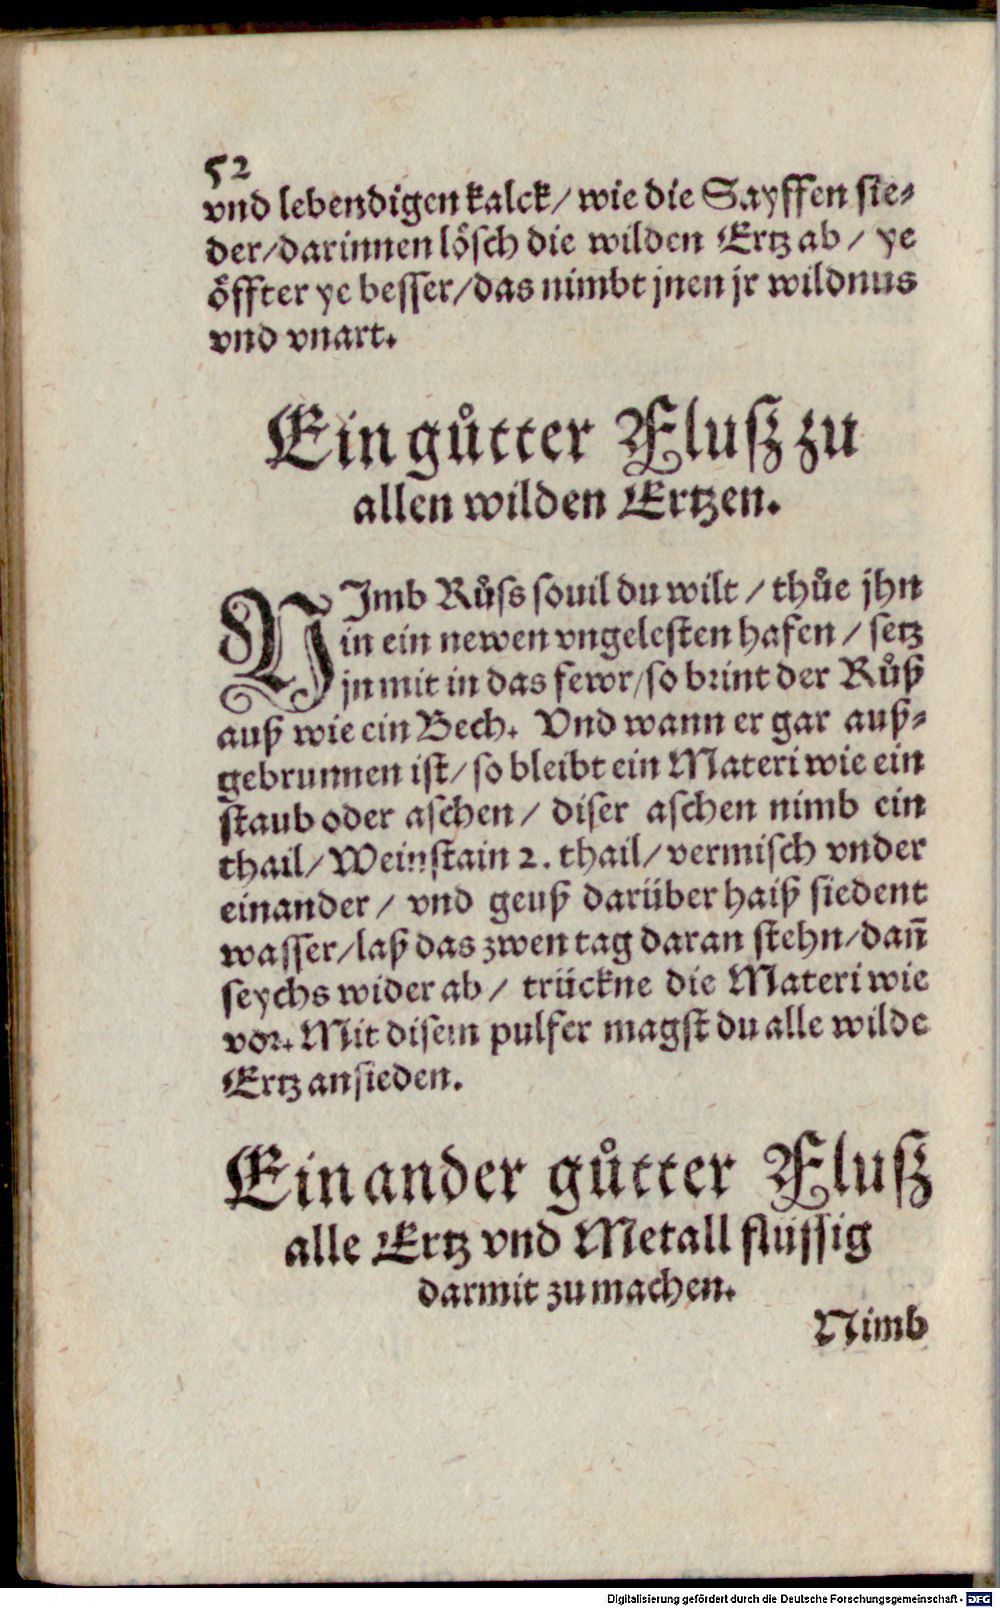 52
vnd lebendigen kalck/ wie die Sayffen sie⸗
der/darinnen lösch die wilden Ertz ab / ye
öffter ye besser/das nimbt jnen jr wildnus
vnd vnart.
Ein gůtter Flusz zu
allen wilden Ertzen.
NImb Růss souil du wilt / thůe jhn
in ein newen vngelesten hafen / setz
jn mit in das fewr/so brint der Růß
auß wie ein Bech. Vnd wann er gar auß⸗
gebrunnen ist/ so bleibt ein Materi wie ein
staub oder aschen / diser aschen nimb ein
thail/ Weinstain 2. thail/ vermisch vnder
einander / vnd geuß darüber haiß siedent
wasser/laß das zwen tag daran stehn/dañ
seychs wider ab / trückne die Materi wie
vor. Mit disem pulfer magst du alle wilde
Ertz ansieden.
Ein ander gůtter Flusz
alle Ertz vnd Metall flüssig
darmit zu machen.
Nimb
Digitalisierung gefördert durch die Deutsche Forschungsgemeinschaft - DFG